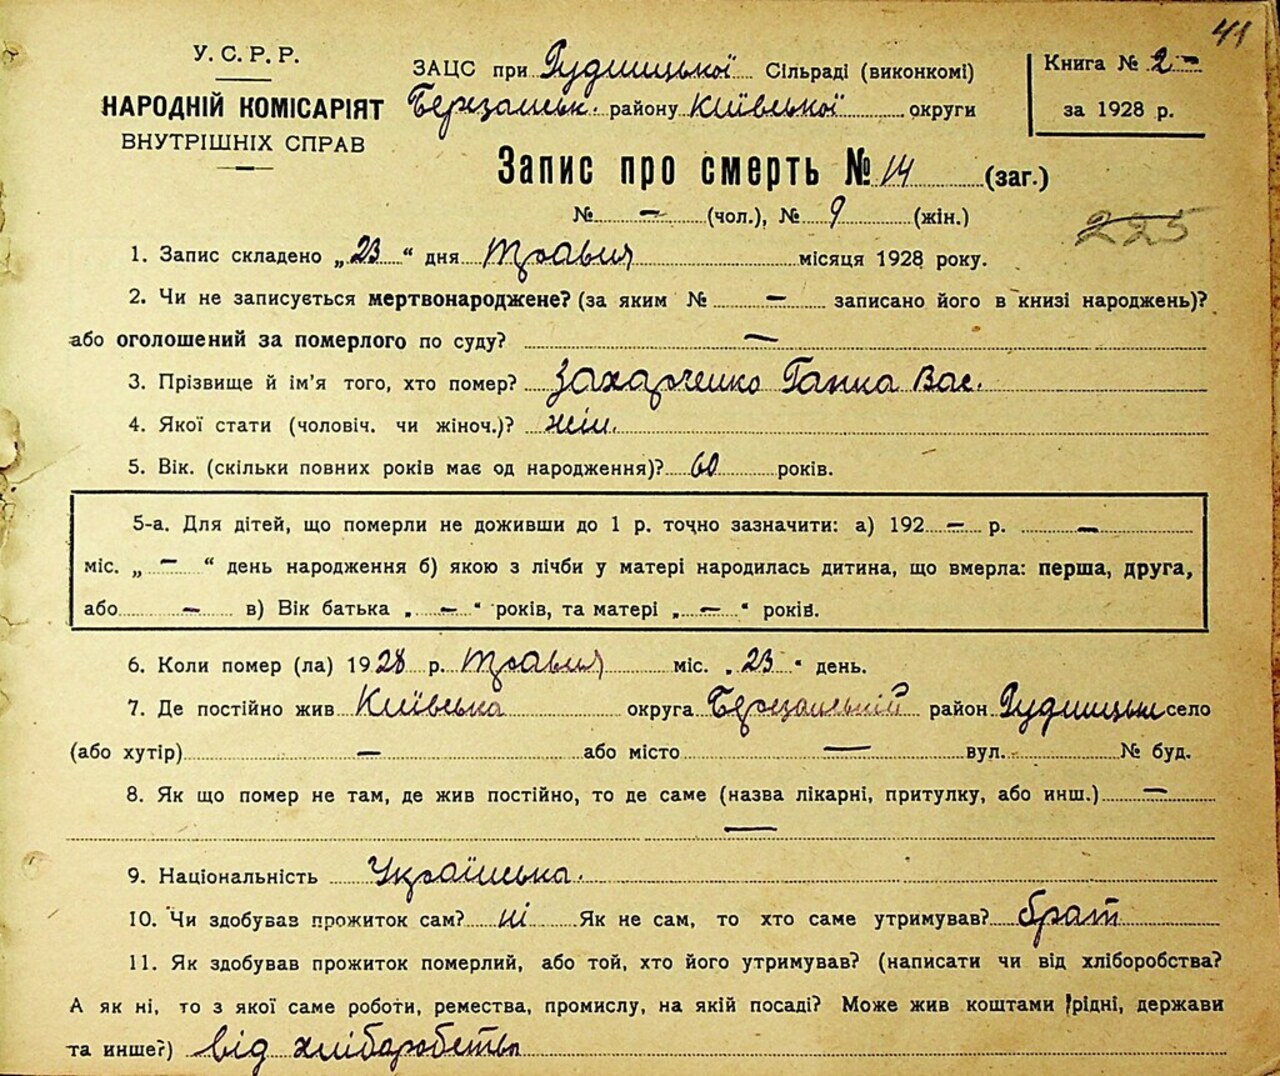 41
У. С. Р. Р.
НАРОДНІЙ КОМІСАРІЯТ
ВНУТРІШНІХ СПРАВ
ЗАЦС при Рудницької Сільраді (виконкомі)
Березанськ. району Київської округи
Книга № 2 -
за 1928 р.
Запис про смерть № 14 (заг.)
№ — (чол.), № 9 (жін.)
225
1. Запис складено „23“ дня травня місяця 1928 року.
2. Чи не записується мертвонароджене? (за яким № — записано його в книзі народжень)?
або оголошений за померлого по суду? —
3. Прізвище й ім'я того, хто помер? Захарченко Ганна Вас.
4. Якої стати (чоловіч. чи жіноч.)? жін.
5. Вік. (скільки повних років має од народження)? 60 років.
5-а. Для дітей, що померли не доживши до 1 р. точно зазначити: а) 192 — р. —
міс. „ — “ день народження б) якою з лічби у матері народилась дитина, що вмерла: перша, друга,
або — в) Вік батька „ — “ років, та матері „ — “ років.
6. Коли помер (ла) 1928 р. травня міс. „23“ день.
7. Де постійно жив Київська округа Березанський район Рудницьке село
(або хутір) — або місто — вул. № буд.
8. Як що помер не там, де жив постійно, то де саме (назва лікарні, притулку, або инш.) —
—
9. Національність Українська.
10. Чи здобував прожиток сам? ні Як не сам, то хто саме утримував? брат
11. Як здобував прожиток померлий, або той, хто його утримував? (написати чи від хліборобства?
А як ні, то з якої саме роботи, ремества, промислу, на якій посаді? Може жив коштами рідні, держави
та инше?) від хліборобства